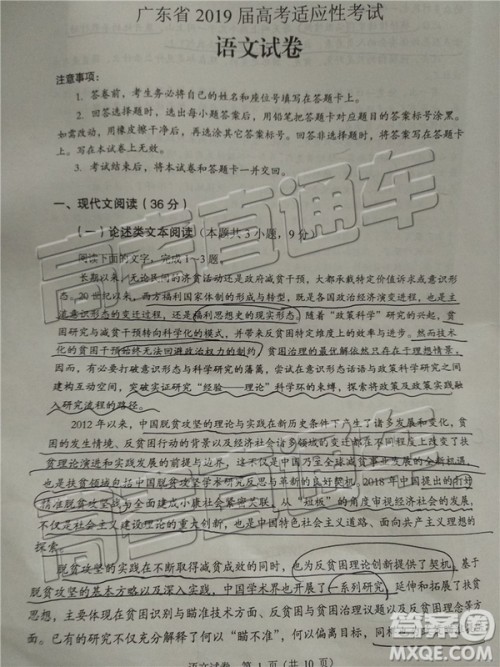 广东省 2019 届高考适应性考试
语文试卷
注意事项：
1. 答卷前，考生务必将自己的姓名和座位号填写在答题卡上。
2. 回答选择题时，选出每小题答案后，用铅笔把答题卡对应题目的答案标号涂黑。
如需改动，用橡皮擦干净后，再选涂其它答案标号。回答非选择题时，将答案写在答题卡
上。写在本试卷上无效。
3. 考试结束后，将本试卷和答题卡一并交回。
一、现代文阅读（36 分）
（一）论述类文本阅读（本题共 3 小题，9 分）
阅读下面的文字，完成 1～3 题。
长期以来，无论民间的济贫活动还是政府减贫干预，大都承载特定价值诉求或意识形
态。20 世纪以来，西方福利国家体制的形成与转型，既是各国政治经济演变进程，也是主
流意识形态的变迁过程，还是福利思想史的现实形态。随着“政策科学”研究的兴起，贫
困研究与减贫干预转向科学化的模式，并带来反贫困特定维度上的效率与进步。然而技术
化的贫困干预始终无法回避政治权力的制约，贫困治理的最优解依然只存在于理想情景。
因而，有必要打破意识形态与科学研究的藩篱，尝试在意识形态话语与政策科学研究之间
建构互动空间，突破实证研究“经验——理论”科学环的束缚，探索将政策及政策实践融
入研究流程的路径。
2012 年以来，中国脱贫攻坚的理论与实践在新历史条件下产生了诸多发展和变化，贫
困的发生情境、反贫困行动的背景以及经济社会诸多领域的变迁都在不同程度上改变了扶
贫理论演进和实践发展的前提与边界，这不仅是中国乃至全球减贫事业发展的全新机遇，
也是扶贫领域包括中国脱贫攻坚学术研究反思与革新的良好契机。2018 年中国提出的打好
精准脱贫攻坚战与全面建成小康社会紧密关联，从“短板”的角度审视经济社会的发展，
也是社会主义建设理论的重大创新，也是中国特色社会主义道路、面向共产主义理想的
探索。
脱贫攻坚的实践在不断取得减贫成效的同时，也为反贫困理论创新提供了契机。基于
脱贫攻坚的基本方略以及深入实践，中国学术界也开展了一系列研究，延伸和拓展了扶贫
思想，主要体现在贫困识别与瞄准技术方面、反贫困与贫困治理议题以及反贫困理念等方
面。已有的研究不仅充分解释了何以“瞄不准”，何以偏离目标，同
语文试卷 第 1 页（共 10 页）
高考直通车
高考直通车
高考直通车
答案圈
MXQE.COM